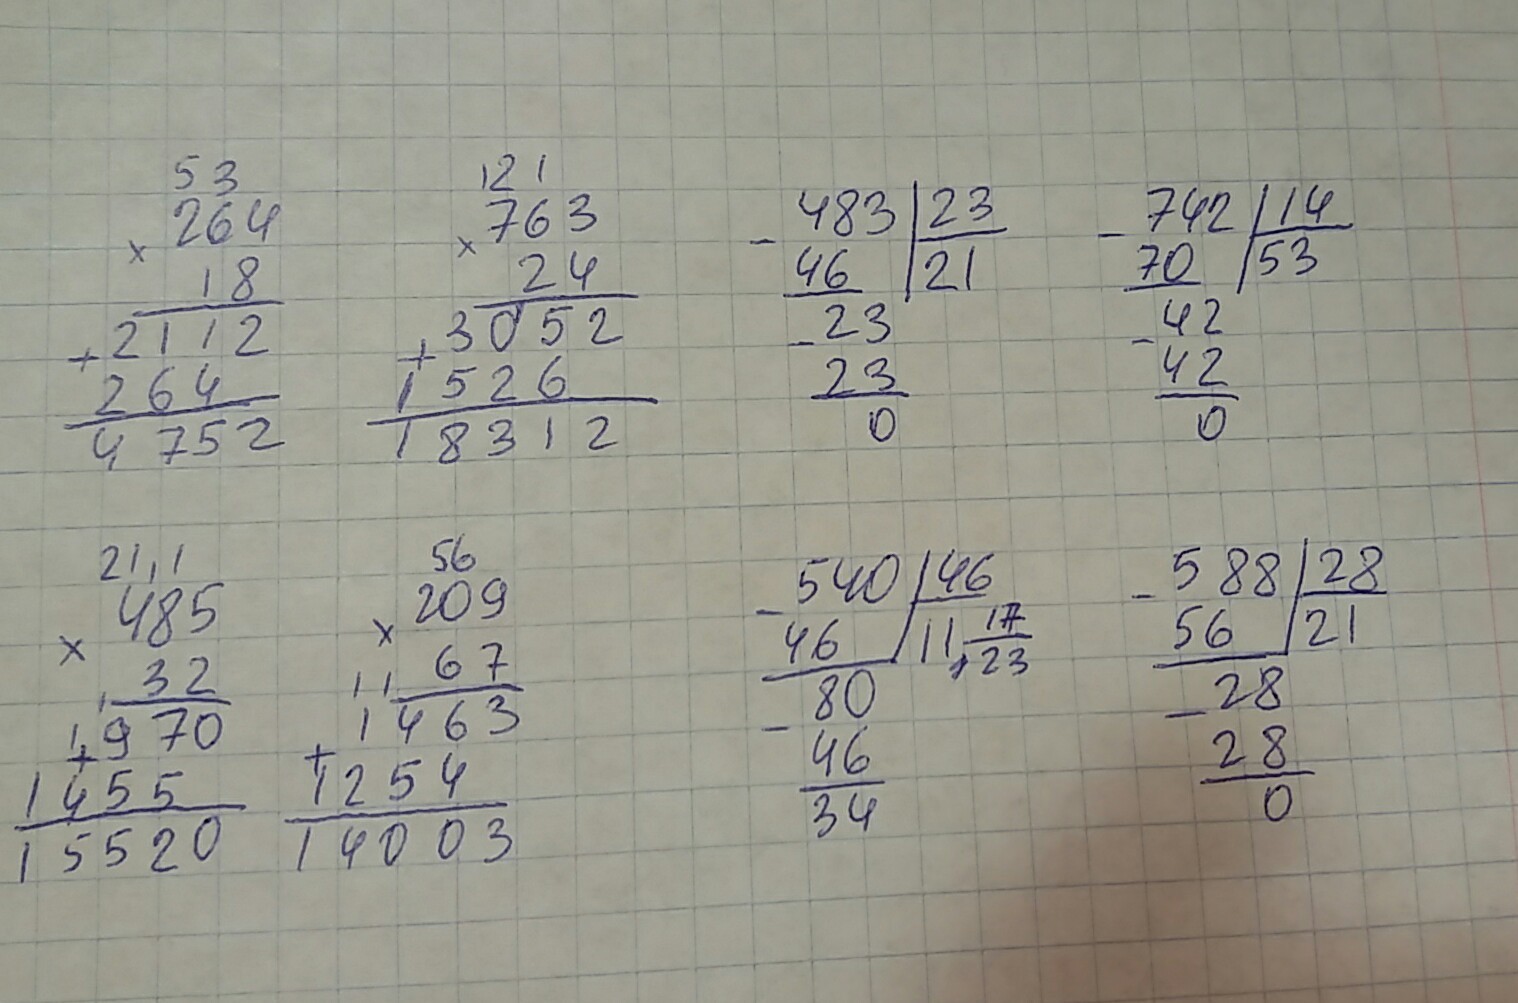 53
264
×
18
2112
+
264
4752
121
763
×
24
3052
+
1526
18312
- 483 | 23
46 | 21
- 23
23
0
- 742 | 14
70 | 53
- 42
42
0
21,1
485
×
32
1
1970
+
1455
15520
56
209
×
67
11
1463
+
1254
14003
- 540 | 46
46 | 11, 17/23
80
-
46
34
- 588 | 28
56 | 21
- 28
28
0